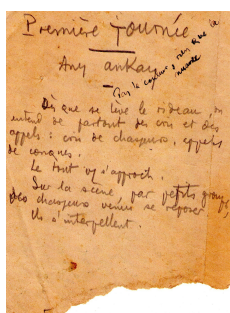 Première journée
Any ankay
Dès que se lève le rideau, on
entend de partout des cris et des
appels : cris de chasseurs, appels
de conques.
Le bruit s'approch.
Sur la scène, par petits groupes,
des chasseurs venus se reposer
Ils s'interpellent.